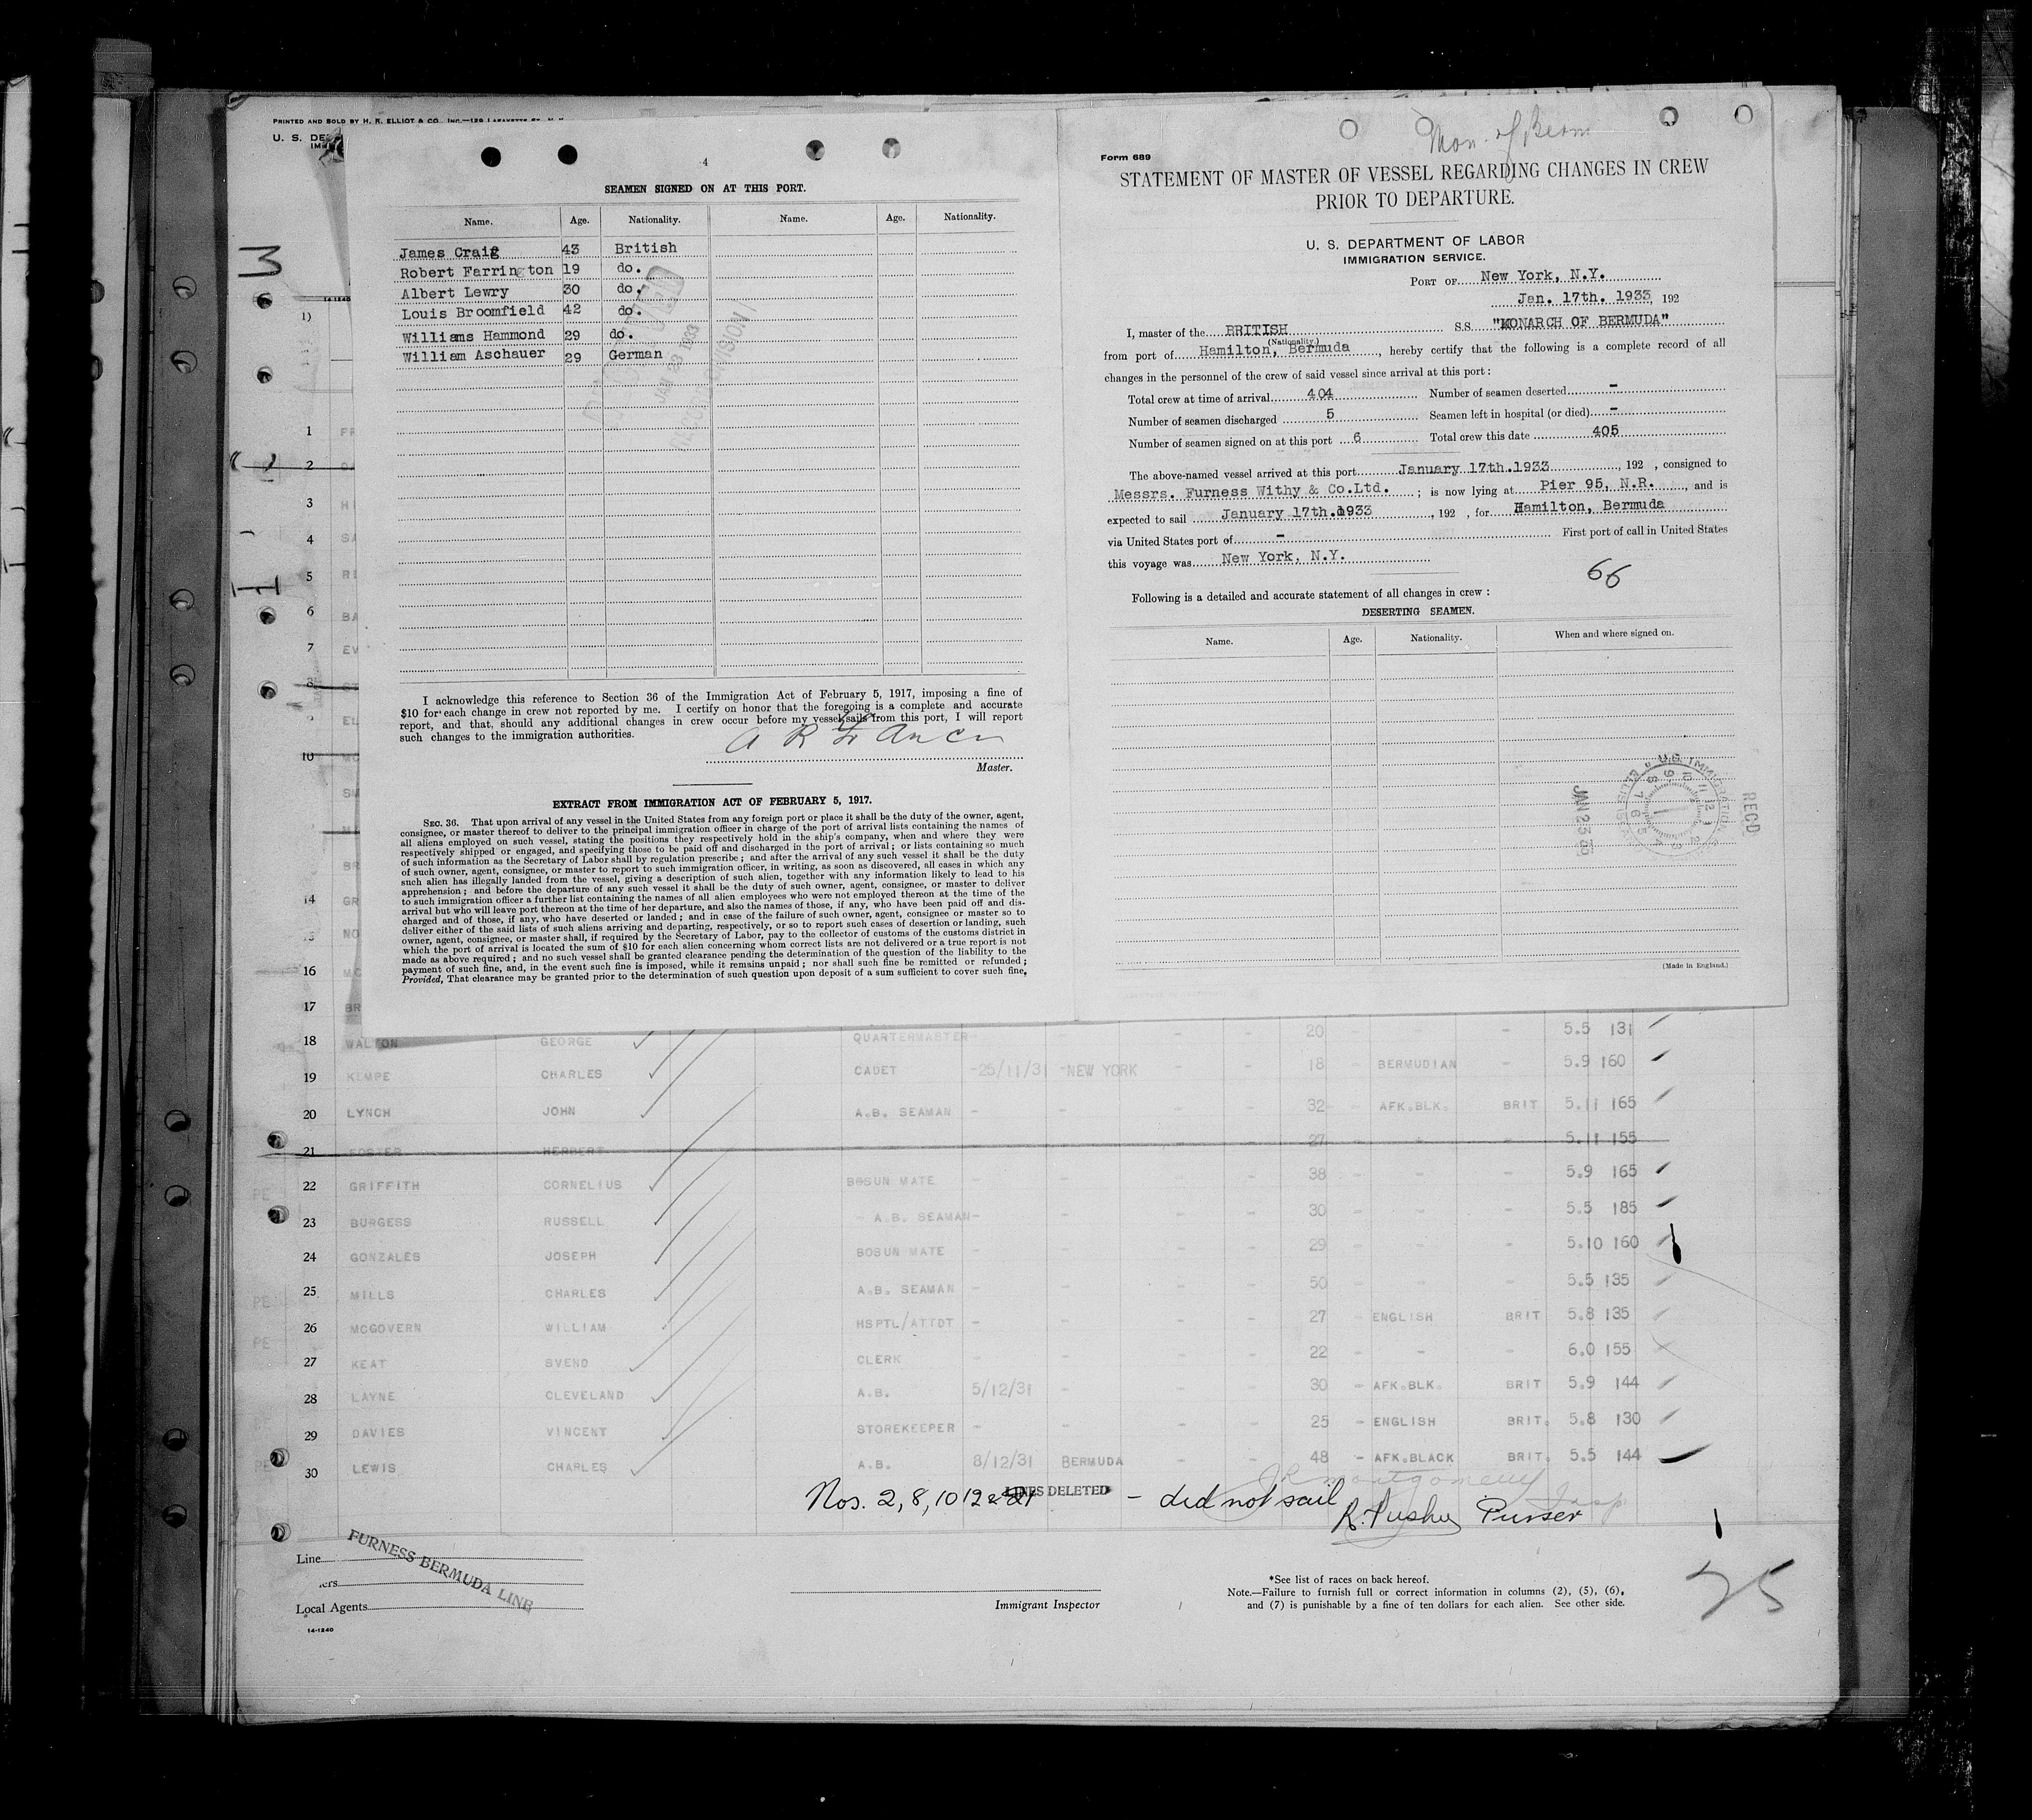 PRINTED AND SOLD BY H. R. ELLIOT & CO., INC.—129 LAFAYETTE ST.
U. S. DE
4
SEAMEN SIGNED ON AT THIS PORT.
Name. Age. Nationality. Name. Age. Nationality.
James Craig 43 British
Robert Farrington 19 do.
Albert Lewry 30 do.
Louis Broomfield 42 do.
Williams Hammond 29 do.
William Aschauer 29 German
JAN 23 1933
I acknowledge this reference to Section 36 of the Immigration Act of February 5, 1917, imposing a fine of
$10 for each change in crew not reported by me. I certify on honor that the foregoing is a complete and accurate
report, and that, should any additional changes in crew occur before my vessel sails from this port, I will report
such changes to the immigration authorities.
A R Francis
Master.
EXTRACT FROM IMMIGRATION ACT OF FEBRUARY 5, 1917.
SEC. 36. That upon arrival of any vessel in the United States from any foreign port or place it shall be the duty of the owner, agent,
consignee, or master thereof to deliver to the principal immigration officer in charge of the port of arrival lists containing the names of
all aliens employed on such vessel, stating the positions they respectively hold in the ship's company, when and where they were
respectively shipped or engaged, and specifying those to be paid off and discharged in the port of arrival; or lists containing so much
of such information as the Secretary of Labor shall by regulation prescribe; and after the arrival of any such vessel it shall be the duty
of such owner, agent, consignee, or master to report to such immigration officer, in writing, as soon as discovered, all cases in which any
such alien has illegally landed from the vessel, giving a description of such alien, together with any information likely to lead to his
apprehension; and before the departure of any such vessel it shall be the duty of such owner, agent, consignee, or master to deliver
to such immigration officer a further list containing the names of all alien employees who were not employed thereon at the time of the
arrival but who will leave port thereon at the time of her departure, and also the names of those, if any, who have been paid off and dis-
charged and of those, if any, who have deserted or landed; and in case of the failure of such owner, agent, consignee or master so to
deliver either of the said lists of such aliens arriving and departing, respectively, or so to report such cases of desertion or landing, such
owner, agent, consignee, or master shall, if required by the Secretary of Labor, pay to the collector of customs of the customs district in
which the port of arrival is located the sum of $10 for each alien concerning whom correct lists are not delivered or a true report is not
made as above required; and no such vessel shall be granted clearance pending the determination of the question of the liability to the
payment of such fine, and, in the event such fine is imposed, while it remains unpaid; nor shall such fine be remitted or refunded;
Provided, That clearance may be granted prior to the determination of such question upon deposit of a sum sufficient to cover such fine.
Mon. of Berm
Form 689
STATEMENT OF MASTER OF VESSEL REGARDING CHANGES IN CREW
PRIOR TO DEPARTURE.
U. S. DEPARTMENT OF LABOR
IMMIGRATION SERVICE.
PORT OF New York, N.Y.
Jan. 17th. 1933, 192
I, master of the BRITISH S.S. "MONARCH OF BERMUDA"
(Nationality.)
from port of Hamilton, Bermuda, hereby certify that the following is a complete record of all
changes in the personnel of the crew of said vessel since arrival at this port:
Total crew at time of arrival 404 Number of seamen deserted -
Number of seamen discharged 5 Seamen left in hospital (or died) -
Number of seamen signed on at this port 6 Total crew this date 405
The above-named vessel arrived at this port January 17th.1933, 192 , consigned to
Messrs. Furness Withy & Co.Ltd. ; is now lying at Pier 95, N.R., and is
expected to sail January 17th.1933, 192 , for Hamilton, Bermuda
via United States port of - First port of call in United States
this voyage was New York, N.Y.
66
Following is a detailed and accurate statement of all changes in crew:
DESERTING SEAMEN.
Name. Age. Nationality. When and where signed on.
JAN 23 33
U.S. IMMIGRATION
REC'D
(Made in England.)
14-1240
1)
1
2
3
4
5
6
7
8
9
10
14
16
17 BR
18 WALTON GEORGE QUARTERMASTER - - - 20 - - - 5.5 131
19 KEMPE CHARLES CADET -25/11/31 -NEW YORK - - 18 - BERMUDIAN - 5.9 160
20 LYNCH JOHN A.B. SEAMAN - - - - 32- - AFK.BLK. BRIT 5.11 165
21 FOSTER HERBERT 27 - - - 5.11 155
22 GRIFFITH CORNELIUS BOSUN MATE - - - - 38 - - - 5.9 165
23 BURGESS RUSSELL - A.B. SEAMAN- - - - 30 - - - 5.5 185
24 GONZALES JOSEPH BOSUN MATE - - - - 29 - - - 5.10 160
25 MILLS CHARLES A.B. SEAMAN - - - - 50 - - - 5.5 135
26 MCGOVERN WILLIAM HSPTL/ATTDT - - - - 27 - ENGLISH BRIT 5.8 135
27 KEAT SVEND CLERK - - - - 22 - - - 6.0 155
28 LAYNE CLEVELAND A.B. 5/12/31 - - - 30 - AFK.BLK. BRIT 5.9 144
29 DAVIES VINCENT STOREKEEPER - - - - 25 - ENGLISH BRIT. 5.8 130
30 LEWIS CHARLES A.B. 8/12/31 BERMUDA - - 48 - AFK.BLACK BRIT. 5.5 144
Nos. 2, 8, 10 12 & 21 LINES DELETED - did not sail
J R Montgomery Insp
R. Pushey Purser
Line
FURNESS BERMUDA LINE
Local Agents
14-1240
Immigrant Inspector
*See list of races on back hereof.
Note.—Failure to furnish full or correct information in columns (2), (5), (6),
and (7) is punishable by a fine of ten dollars for each alien. See other side.
75